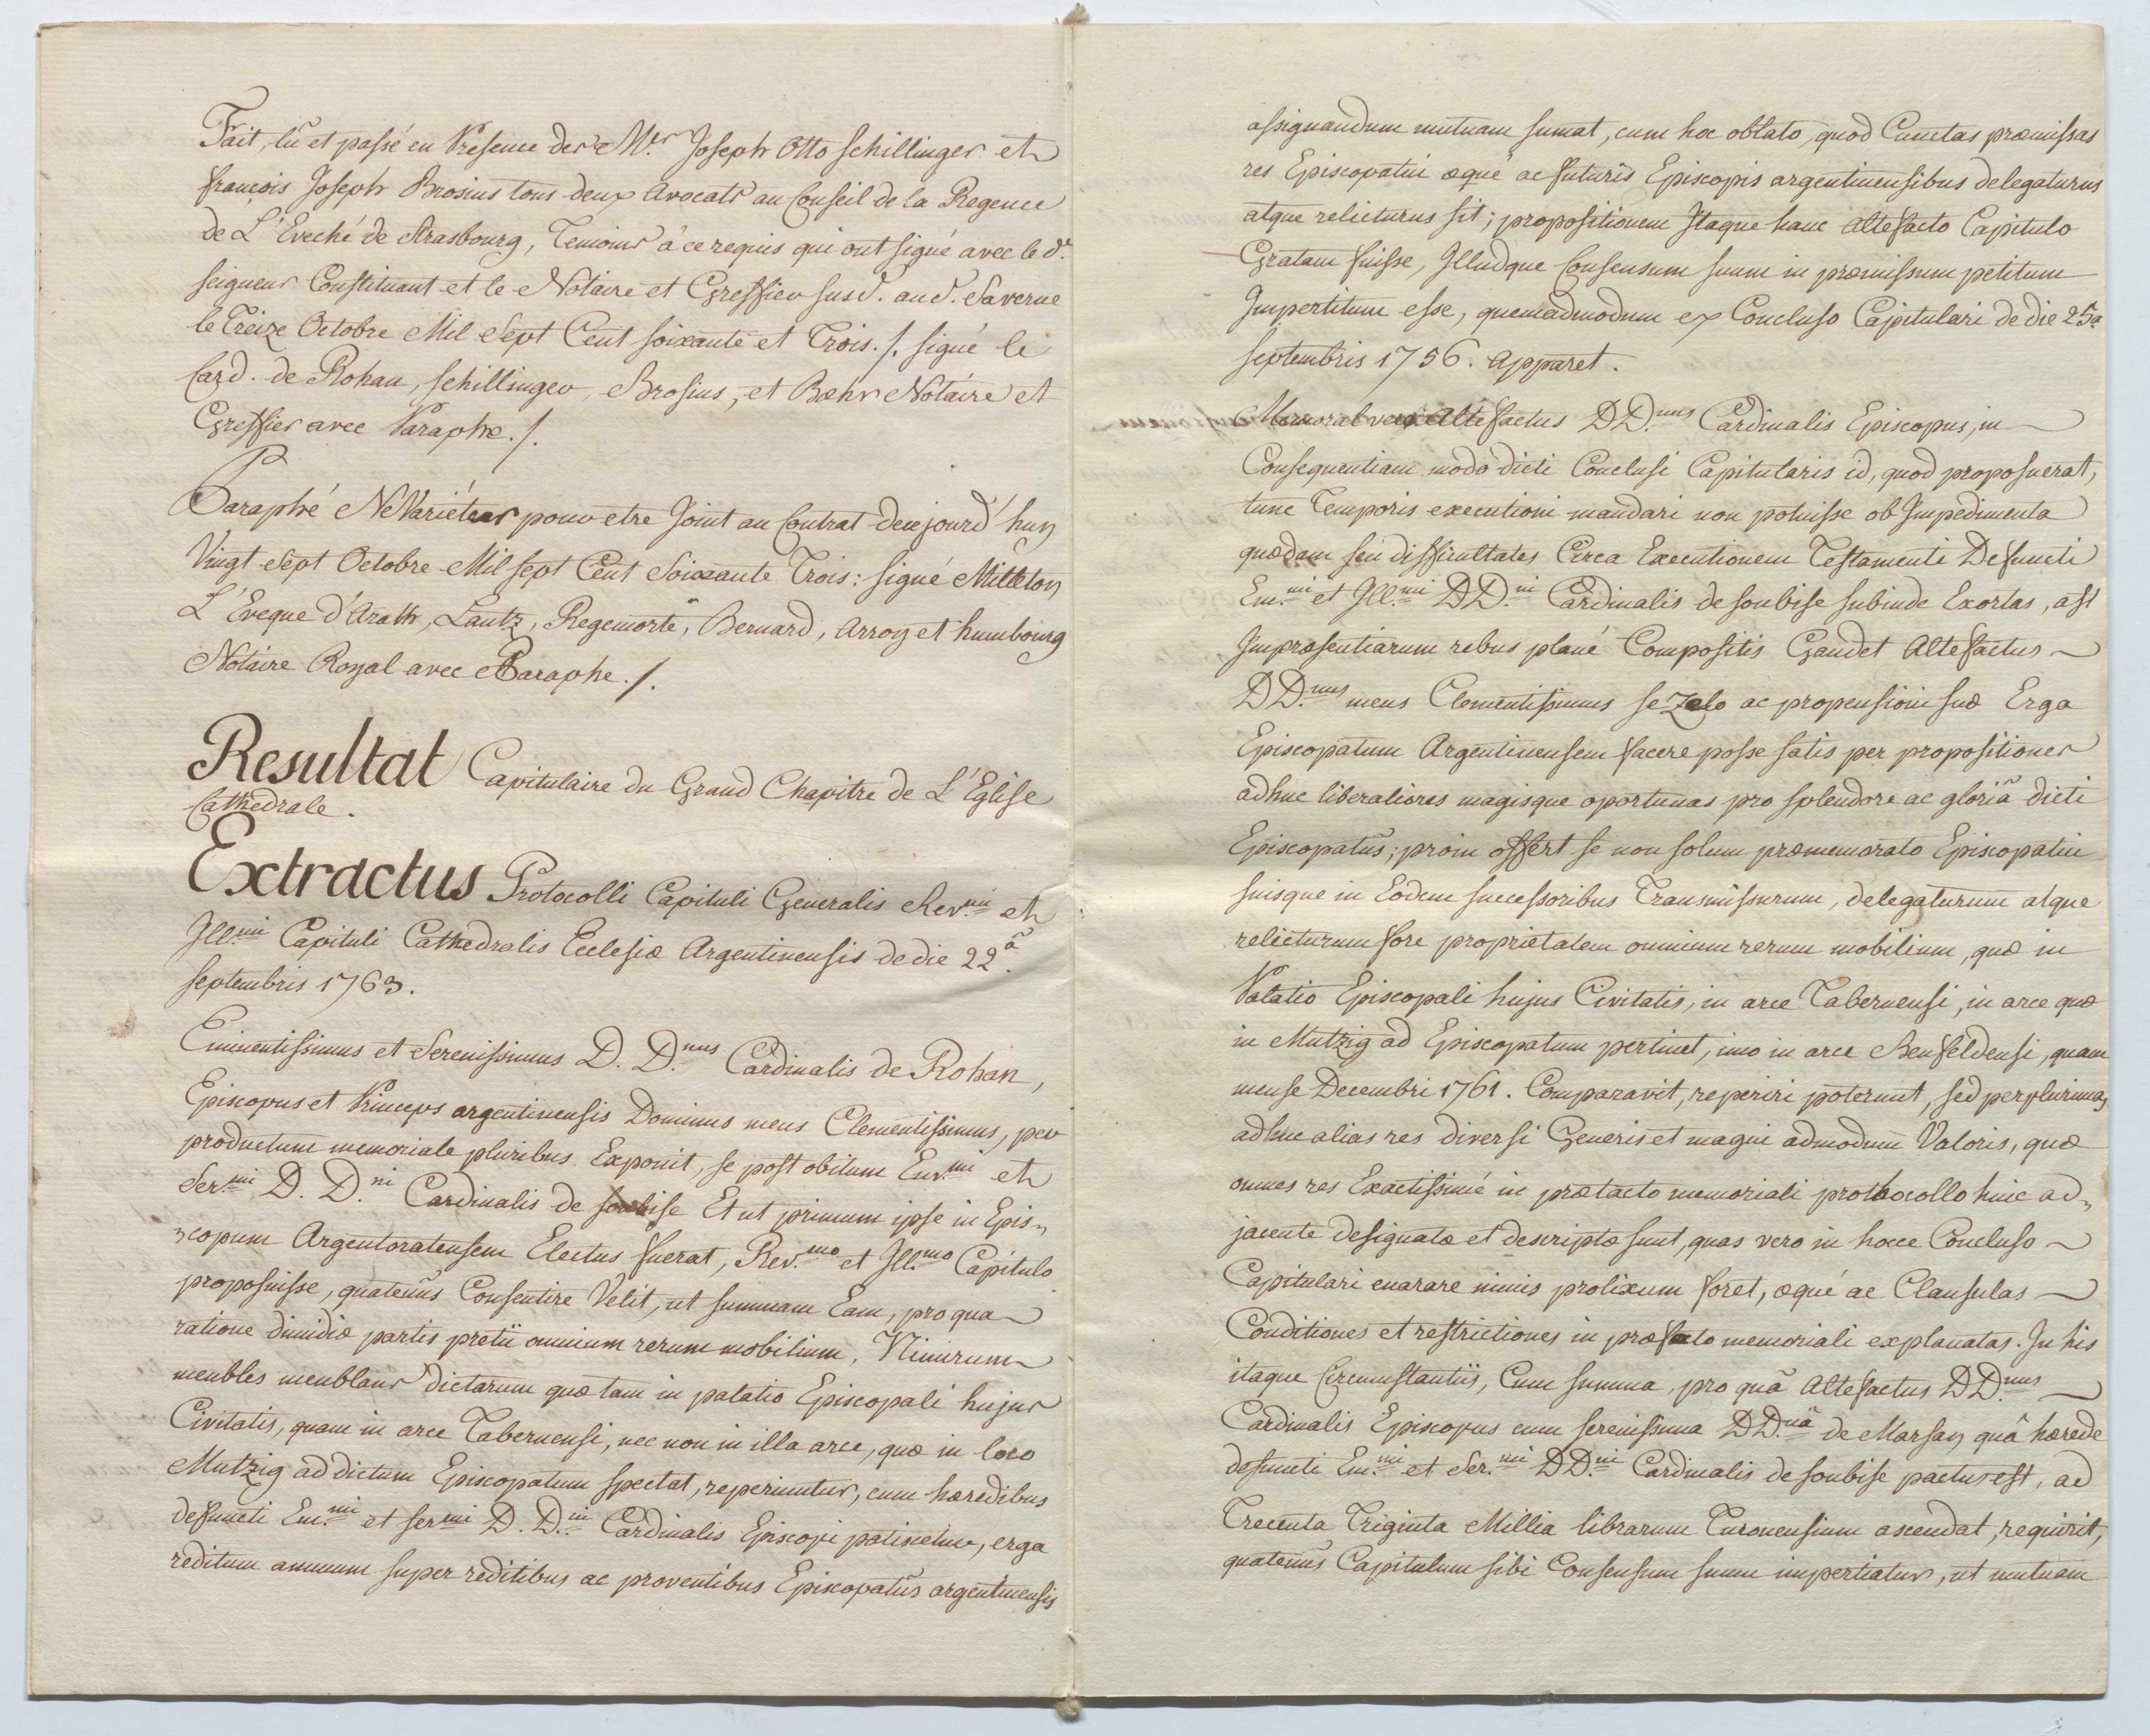 Fait, lû et passé en Présence des Mes. Joseph Otto Schillinger et
françois Joseph Brosius tous deux Avocats au Conseil de la Regence
de L'Eveché de Strasbourg, Temoins à ce requis qui ont signé avec le d.
seigneur Constituant et le Notaire et Greffier susd. aud. Saverne
le Treize Octobre Mil Sept Cent soixante et Trois ./. signé le
Card. de Rohan, schillinger, Brosius, et Bœhr Notaire et
Greffier avec Paraphe ./.
Paraphé NeVariétur pour etre Joint au Contrat decejourd'huy
Vingt Sept Octobre Mil sept Cent Soixante Trois: signé Milleton
L'Eveque d'Arath, Lantz, Regemorte, Bernard, Arroy et humbourg
Notaire Royal avec Paraphe ./.
Resultat Capitulaire du Grand Chapitre de L'Eglise
Cathedrale.
Extractus Protocolli Capituli Generalis Rev.mi et
Ill.mi Capituli Cathedralis Ecclesiæ Argentinensis de die 22.â
septembris 1763.
Eminentissimus et Serenissimus D. D.nus Cardinalis de Rohan,
Episcopus et Princeps argentinensis Dominus meus Clementissimus, per
productum memoriale pluribus Exponit, se post obitum Em.mi et
Ser.mi D. D.ni Cardinalis de soubise Et ut primum ipse in Epis„
„copum Argentoratensem Electus fuerat, Rev.mo et Ill.mo Capitulo
proposuisse, quatenùs Consentire Velit, ut summam Eam, pro qua
ratione dimidiæ partis pretii omnium rerum mobilium, Nimirum
meubles meublans dictarum quæ tam in palatio Episcopali hujus
Civitatis, quam in arce Tabernensi, nec non in illa arce, quæ in loco
Mutzig ad dictum Episcopatum spectat, reperiuntur, cum hæredibus
defuncti Em.mi et ser.mi D. D.ni Cardinalis Episcopi paciscetur, erga
reditum annuum super reditibus ac proventibus Episcopatûs argentinensis
assignandum mutuam sumat, cum hoc oblato, quod Cunctas præmissas
res Episcopatui æquè ac futuris Episcopis argentinensibus delegaturus
atque relicturus sit; propositionem Itaque hanc altefacto Capitulo
Gratam fuisse, Illudque Consensum suum in præmissum petitum
Impertitum esse, quemadmodum ex Concluso Capitulari de die 25.a
septembris 1756. apparet.
Memorat vero Altefactus DD.nus Cardinalis Episcopus, in
Consequentiam modo dicti Conclusi Capitularis id, quod proposuerat,
tunc Temporis executioni mandari non potuisse ob Impedimenta
quædam seu difficultates Circa Executionem Testamenti Defuncti
Em.mi et Ill.mi DD.ni Cardinalis de soubise subinde Exortas, ast
Impræsentiarum rebus planè Compositis Gaudet Altefactus
DD.nus meus Clementissimus se Zelo ac propensioni suæ Erga
Episcopatum Argentinensem facere posse satis per propositiones
adhuc liberaliores magisque oportunas pro splendore ac gloriâ dicti
Episcopatûs; proin offert se non solum præmemorato Episcopatui
suisque in Eodem successoribus Transmissurum, delegaturum atque
relicturum fore proprietatem omnium rerum mobilium, quæ in
Palatio Episcopali hujus Civitatis, in arce Tabernensi, in arce quæ
in Mutzig ad Episcopatum pertinet, imo in arce Benfeldensi, quam
mense Decembri 1761. Comparavit, reperiri poterunt, sed perplurimas
adhuc alias res diversi Generis et magni admodum Valoris, quæ
omnes res Exactissimè in prætacto memoriali prothocollo huic ad„
jacente designatæ et descriptæ sunt, quas vero in hocce Concluso
Capitulari enarare nimis prolixum foret, æquè ac Clausulas
Conditiones et restrictiones in præfato memoriali explanatas. In his
itaque Circumstantiis, Cum summa, pro quâ Altefactus DD.nus
Cardinalis Episcopus cum serenissima DD.nâ de Marsan quâ hærede
defuncti Em.mi et Ser.mi DD.ni Cardinalis de soubise pactus est, ad
Trecenta Triginta Millia librarum Turonensium ascendat, requirit,
quatenùs Capitulum sibi Consensum suum impertiatur, ut mutuam